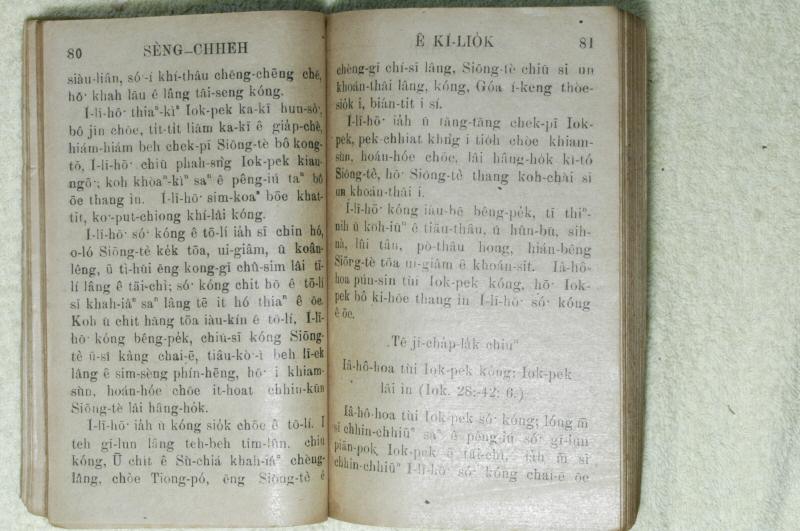 80 SÈNG–CHHEH
siàu-liân, só͘-í khí-thâu chēng-chēng chē,
hō͘ khah lāu ê lâng tāi-seng kóng.
Í-lī-hō͘ thiaⁿ-kìⁿ Iok-pek ka-kī hun-sò͘,
bô jīn chōe, tit-tit liām ka-kī ê gia̍p-chè,
hiám-hiám beh chek-pī Siōng-tè bô kong-
tō, Í-lī-hō͘ chiū phah-sǹg Iok-pek kiau-
ngō͘; koh khòaⁿ-kìⁿ saⁿ ê pêng-iú taⁿ bô
ōe thang ìn. Í-lī-hō͘ sim-koaⁿ bōe khat-
tit, ko͘-put-chiong khí-lâi kóng.
Í-lī-hō͘ só͘ kóng ê tō-lí ia̍h sī chin hó,
o-ló Siōng-tè ke̍k tōa, ui-giâm, ū koân-
lêng, ū tì-hūi èng kong-gī chû-sim lâi tī-
lí lâng ê tāi-chì; só͘ kóng chit hō ê tō-lí
sī khah-iâⁿ saⁿ lâng tē it hó thiaⁿ ê ōe.
Koh ū chit hāng tōa iàu-kín ê tō-lí, Í-lī-
hō͘ kóng bêng-pe̍k, chiū-sī kóng Siōng-
tè ū-sî kàng chai-ē, tiâu-kò͘-ì beh lī-ek
lâng ê sim-sèng phín-hēng, hō͘ i khiam-
sùn, hoán-hóe chōe it-hoat chhin-kūn
Siōng-tè lâi hâng-ho̍k.
Í-lī-hō͘ ia̍h ū kóng sio̍k chōe ê tō-lí. I
teh gī-lūn lâng teh-beh tîm-lûn, chiū
kóng, Ū chit ê Sù-chiá khah-iâⁿ chèng-
lâng, chòe Tiong-pó, èng Siōng-tè ê
Ê KÍ-LIO̍K 81
chèng-gī chí-sī lâng, Siōng-tè chiū si un
khoán-thāi lâng, kóng, Góa í-keng thòe-
sio̍k i, bián-tit i sí.
Í-lī-hō͘ ia̍h ū tàng-tāng chek-pī Iok-
pek, pek-chhiat khǹg i tio̍h chòe khiam-
sùn, hoán-hóe chōe, lâi hâng-ho̍k kî-tó
Siōng-tè, hō͘ Siōng-tè thang koh-chài si
un khoán-thāi i.
Í-lī-hō͘ kóng iáu-bē bêng-pe̍k, tī thiⁿ-
nih ū koh-iūⁿ ê tiāu-thâu, ū hûn-bū, sih-
nà, lûi tân, pò-thâu hong, hián-bêng
Siōng-tè tōa ui-giâm ê khoán-sit. Iâ-hô-
hoa pún-sin tùi Iok-pek kóng, hō͘ Iok-
pek bô kî-hōe thang ìn Í-lī-hō͘ só͘ kóng
ê ōe.
Tē jī-cha̍p-la̍k chiuⁿ
Iâ-hô-hoa tùi Iok-pek kóng; Iok-pek
lâi ìn (Iok. 28:-42: 6.)
Iâ-hô-hoa tùi Iok-pek só͘ kóng; lóng m̄
sī chhin-chhiūⁿ saⁿ ê pêng-iú só͘ gī-lūn
piān-pok Iok-pek ê tāi-chì, ia̍h m̄ sī
chhin-chhiūⁿ Í-lī-hō͘ só͘ kóng chai-ē ôe